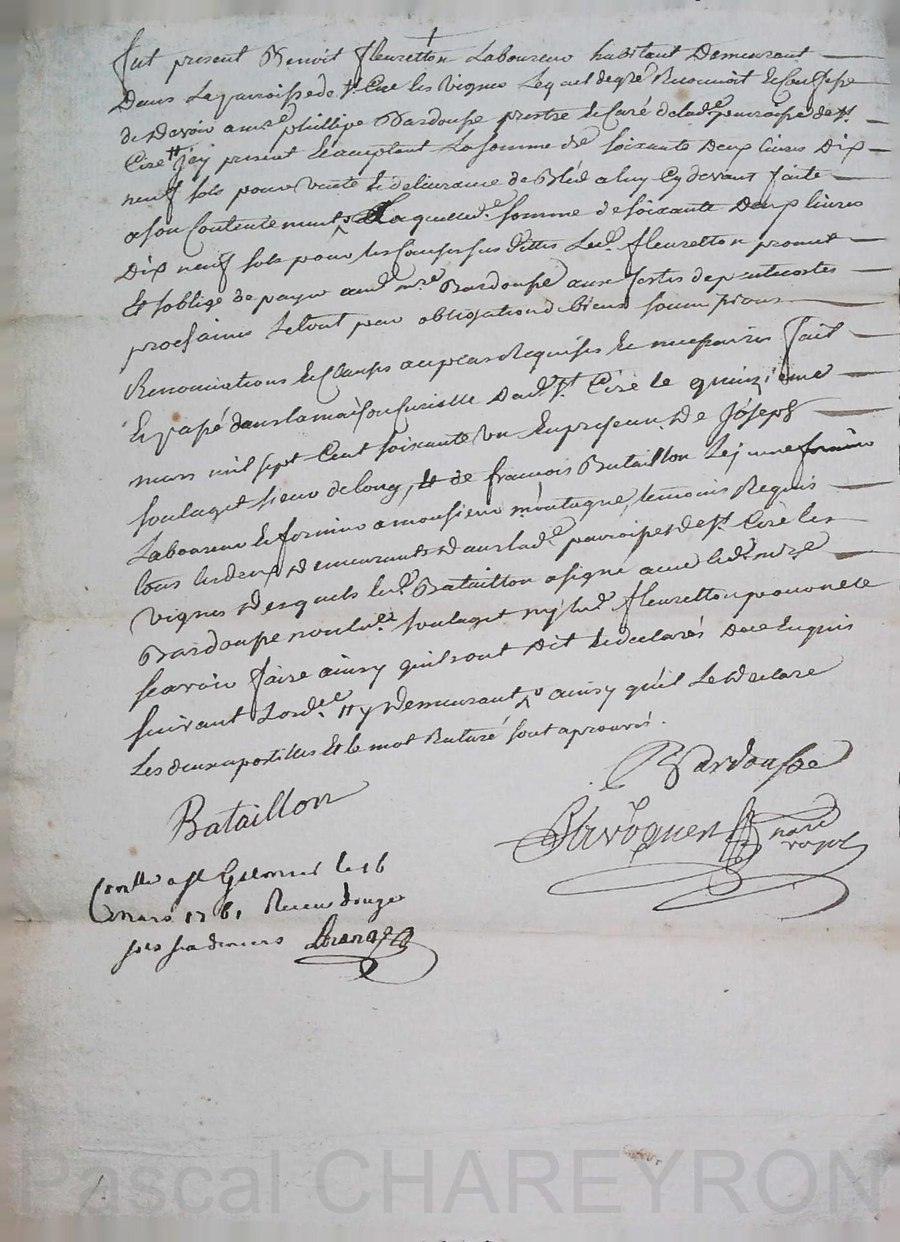 fut present Benoit fleuretton Laboureur habitant Demeurant
Dans La parroisse de st Cire les vignes Lequel de gré Reconnoit Et Confesse
de Devoir a mre phillipe Bardousse prestre Et Curé de lade parroisse de st
Cire tt icy present Et aceptant La somme de soixante Deux livres Dix
neuf sols pour vante Et delivrance de Bléd a luy Cy devant faite
a son Contentement Laquelle de somme de soixante Deux livres
Dix neuf sols pour les Causes sus dittes Led. fleuretton promet
Et soblige de payer aud. mre Bardousse aux festes de pentecostes
prochaines Le tout par obligation de biens soum
Renonciations Et Clauses au pcas Requises Et necessaires fait
Et passé dans la maison Curialle Dud. st Ciré le quinzieme
mars mil sept Cent soixante un En presence De Joseph
soulaget sieur de long, Et de francois Bataillon Lejeune
Laboureur Et fermier a monsieur montagne, temoins Requis
tous les deux Demeurants Dans lade parroisse De st Ciré les
vignes Desquels led. Bataillon a signé avec led. mre
Bardousse non led. soulaget ny led. fleuretton pour ne le
scavoir faire ainsy quil ront Dit Et declarés De ce Enquis
suivant Lordce tt y Demeurant ainsy qu'il Le Declare
Les deux apostilles Et le mot Raturé sont aprouvés.
Bardousse
Bataillon
nore
royal
Conlle a st Galmier le 16
mars 1761 Receu douze
sols six deniers
Pascal CHAREYRON